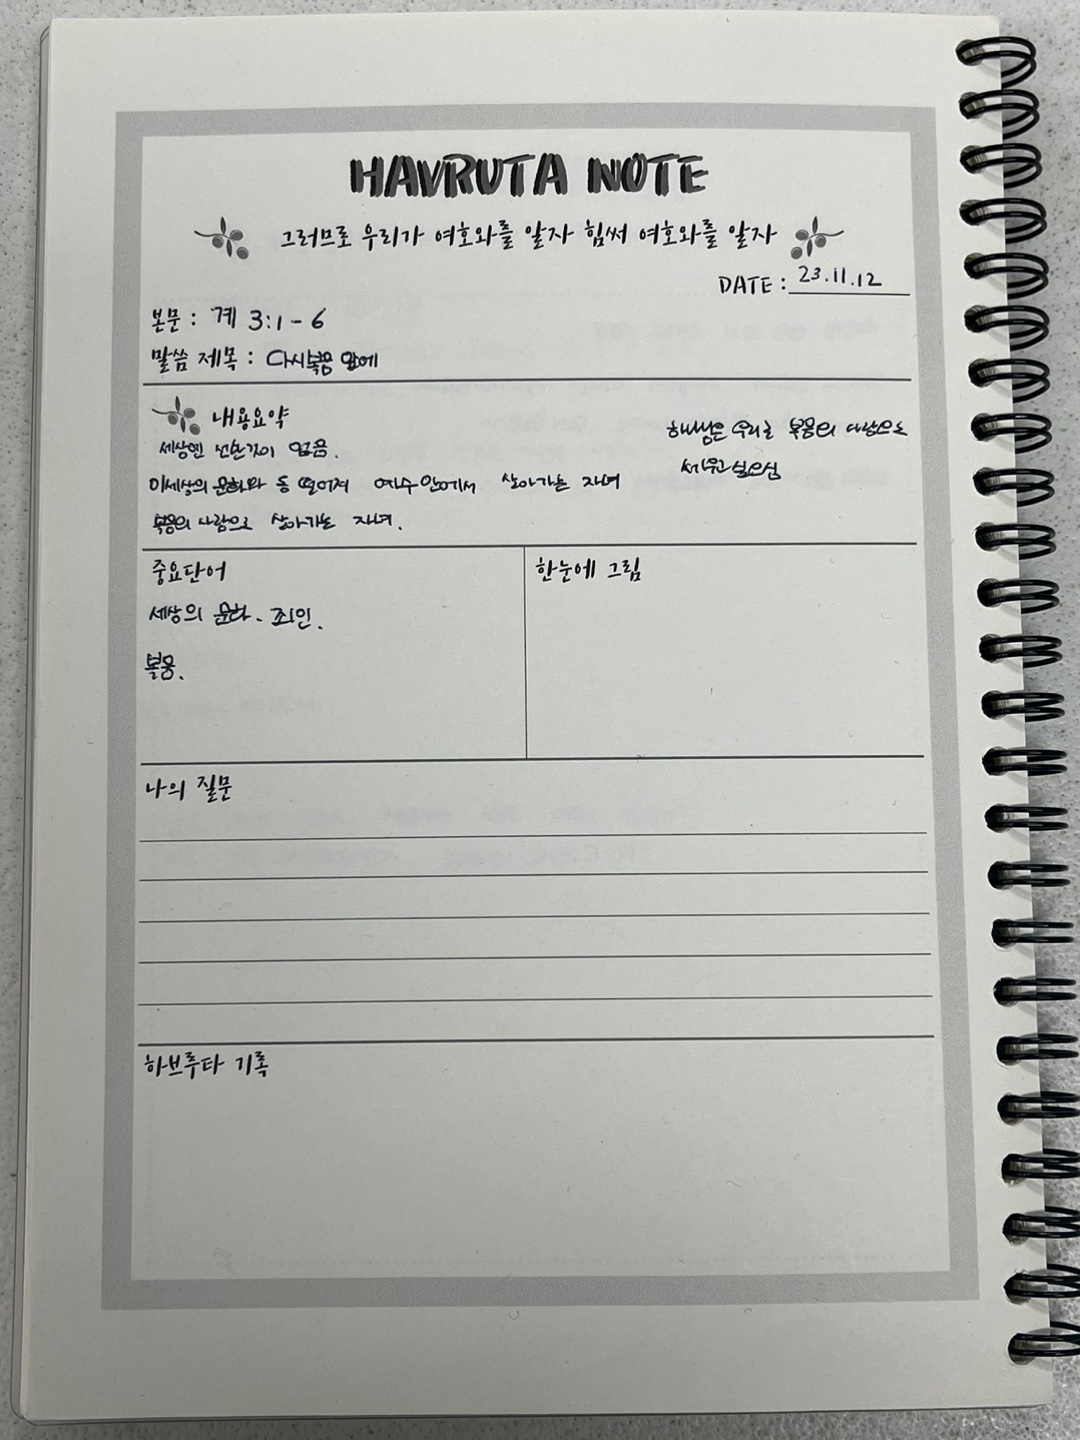 HAVRUTA NOTE
그러므로 우리가 여호와를 알자 힘써 여호와를 알자
DATE : 23.11.12
본문 : 계 3:1-6
말씀 제목 : 다시 복음 앞에
내용요약
세상엔 선한것이 없음.
하나님은 우리를 복음의 사람으로
세우고 싶으심
이세상의 문화와 동 떨어져 예수 안에서 살아가는 자녀
복음의 사람으로 살아가는 자녀.
중요단어
한눈에 그림
세상의 문화. 죄인.
복음.
나의 질문
하브루타 기록